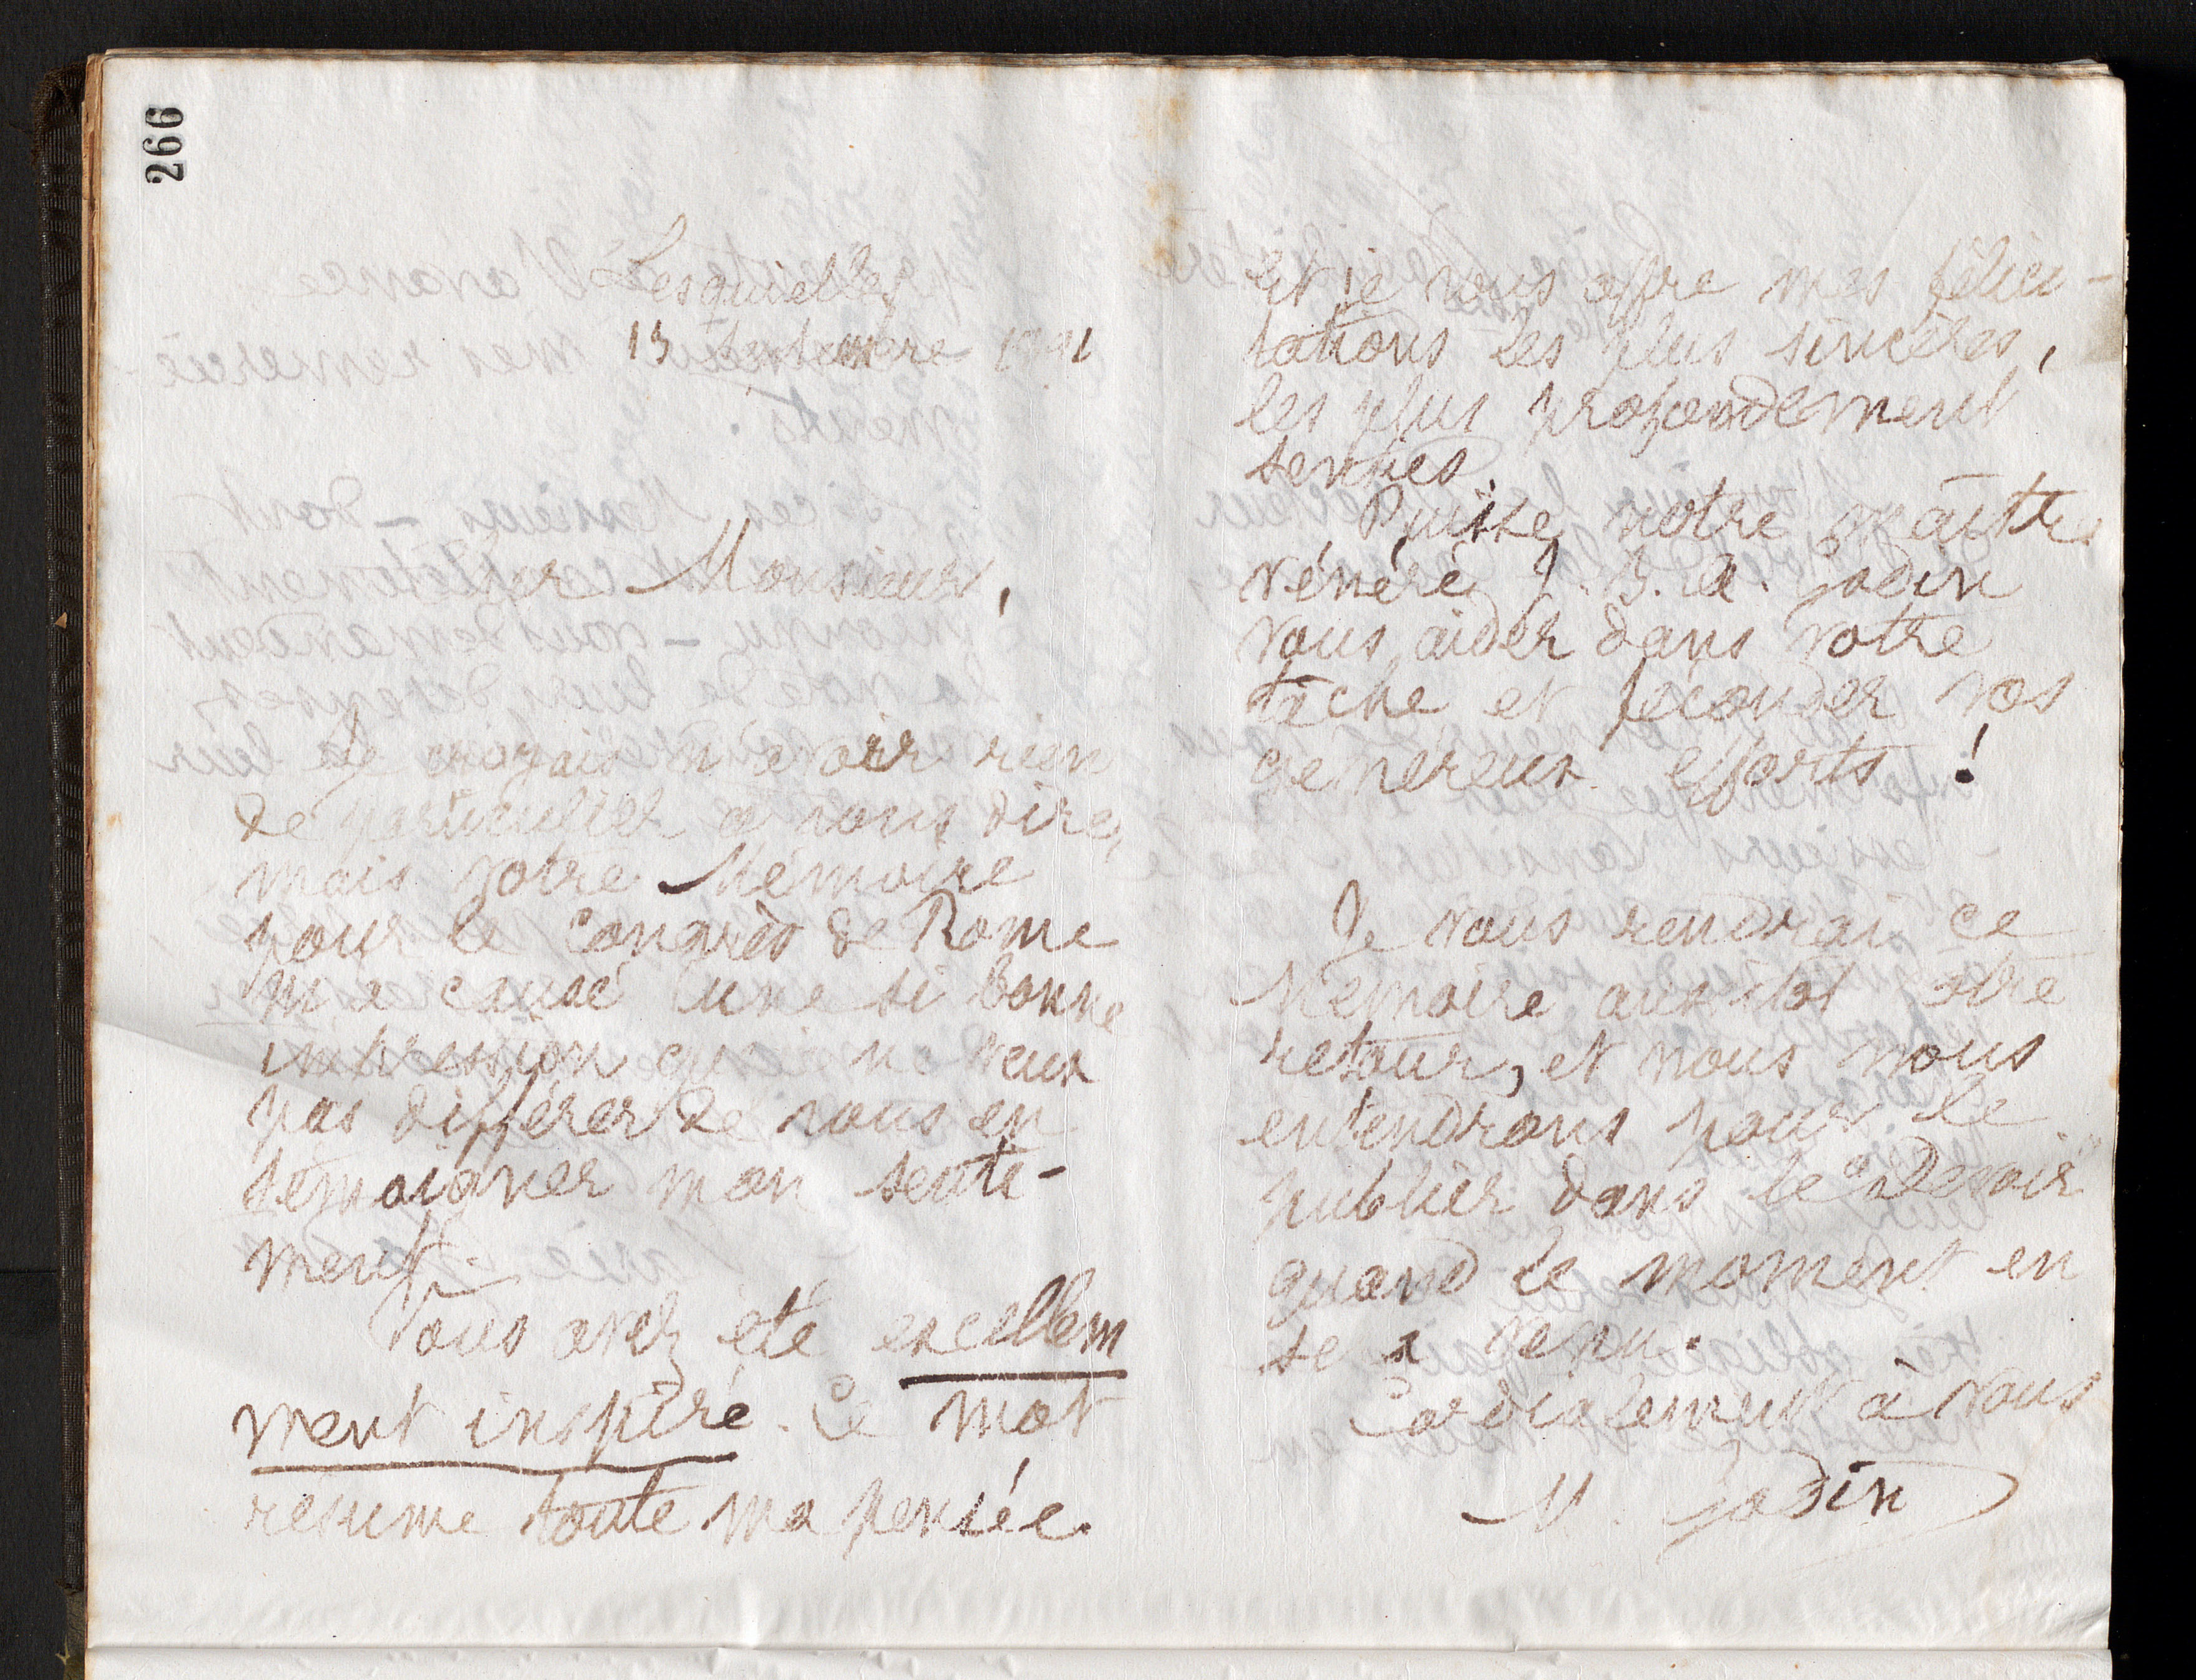 266
Lesquielles
13 Septembre 1891
Cher Monsieur,
Je croyais n'avoir rien
de particulier à vous dire,
mais votre Mémoire
pour le Congrès de Rome
m'a causé une si bonne
impression que je ne veux
pas différer de vous en
témoigner mon senti-
ment.
Vous avez été excellem
ment inspiré. Ce mot
résume toute ma pensée.
Et je vous offre mes félici-
tations les plus sincères,
les plus profondément
senties.
Puisse notre maître
vénéré J. B. A. Godin
vous aider dans votre
tâche et féconder vos
généreux efforts !
Je vous rendrai ce
Mémoire aussitôt votre
retour, et nous nous
entendrons pour le
publier dans le "Devoir"
quand le moment en
sera venu.
Cordialement à vous
M. Godin